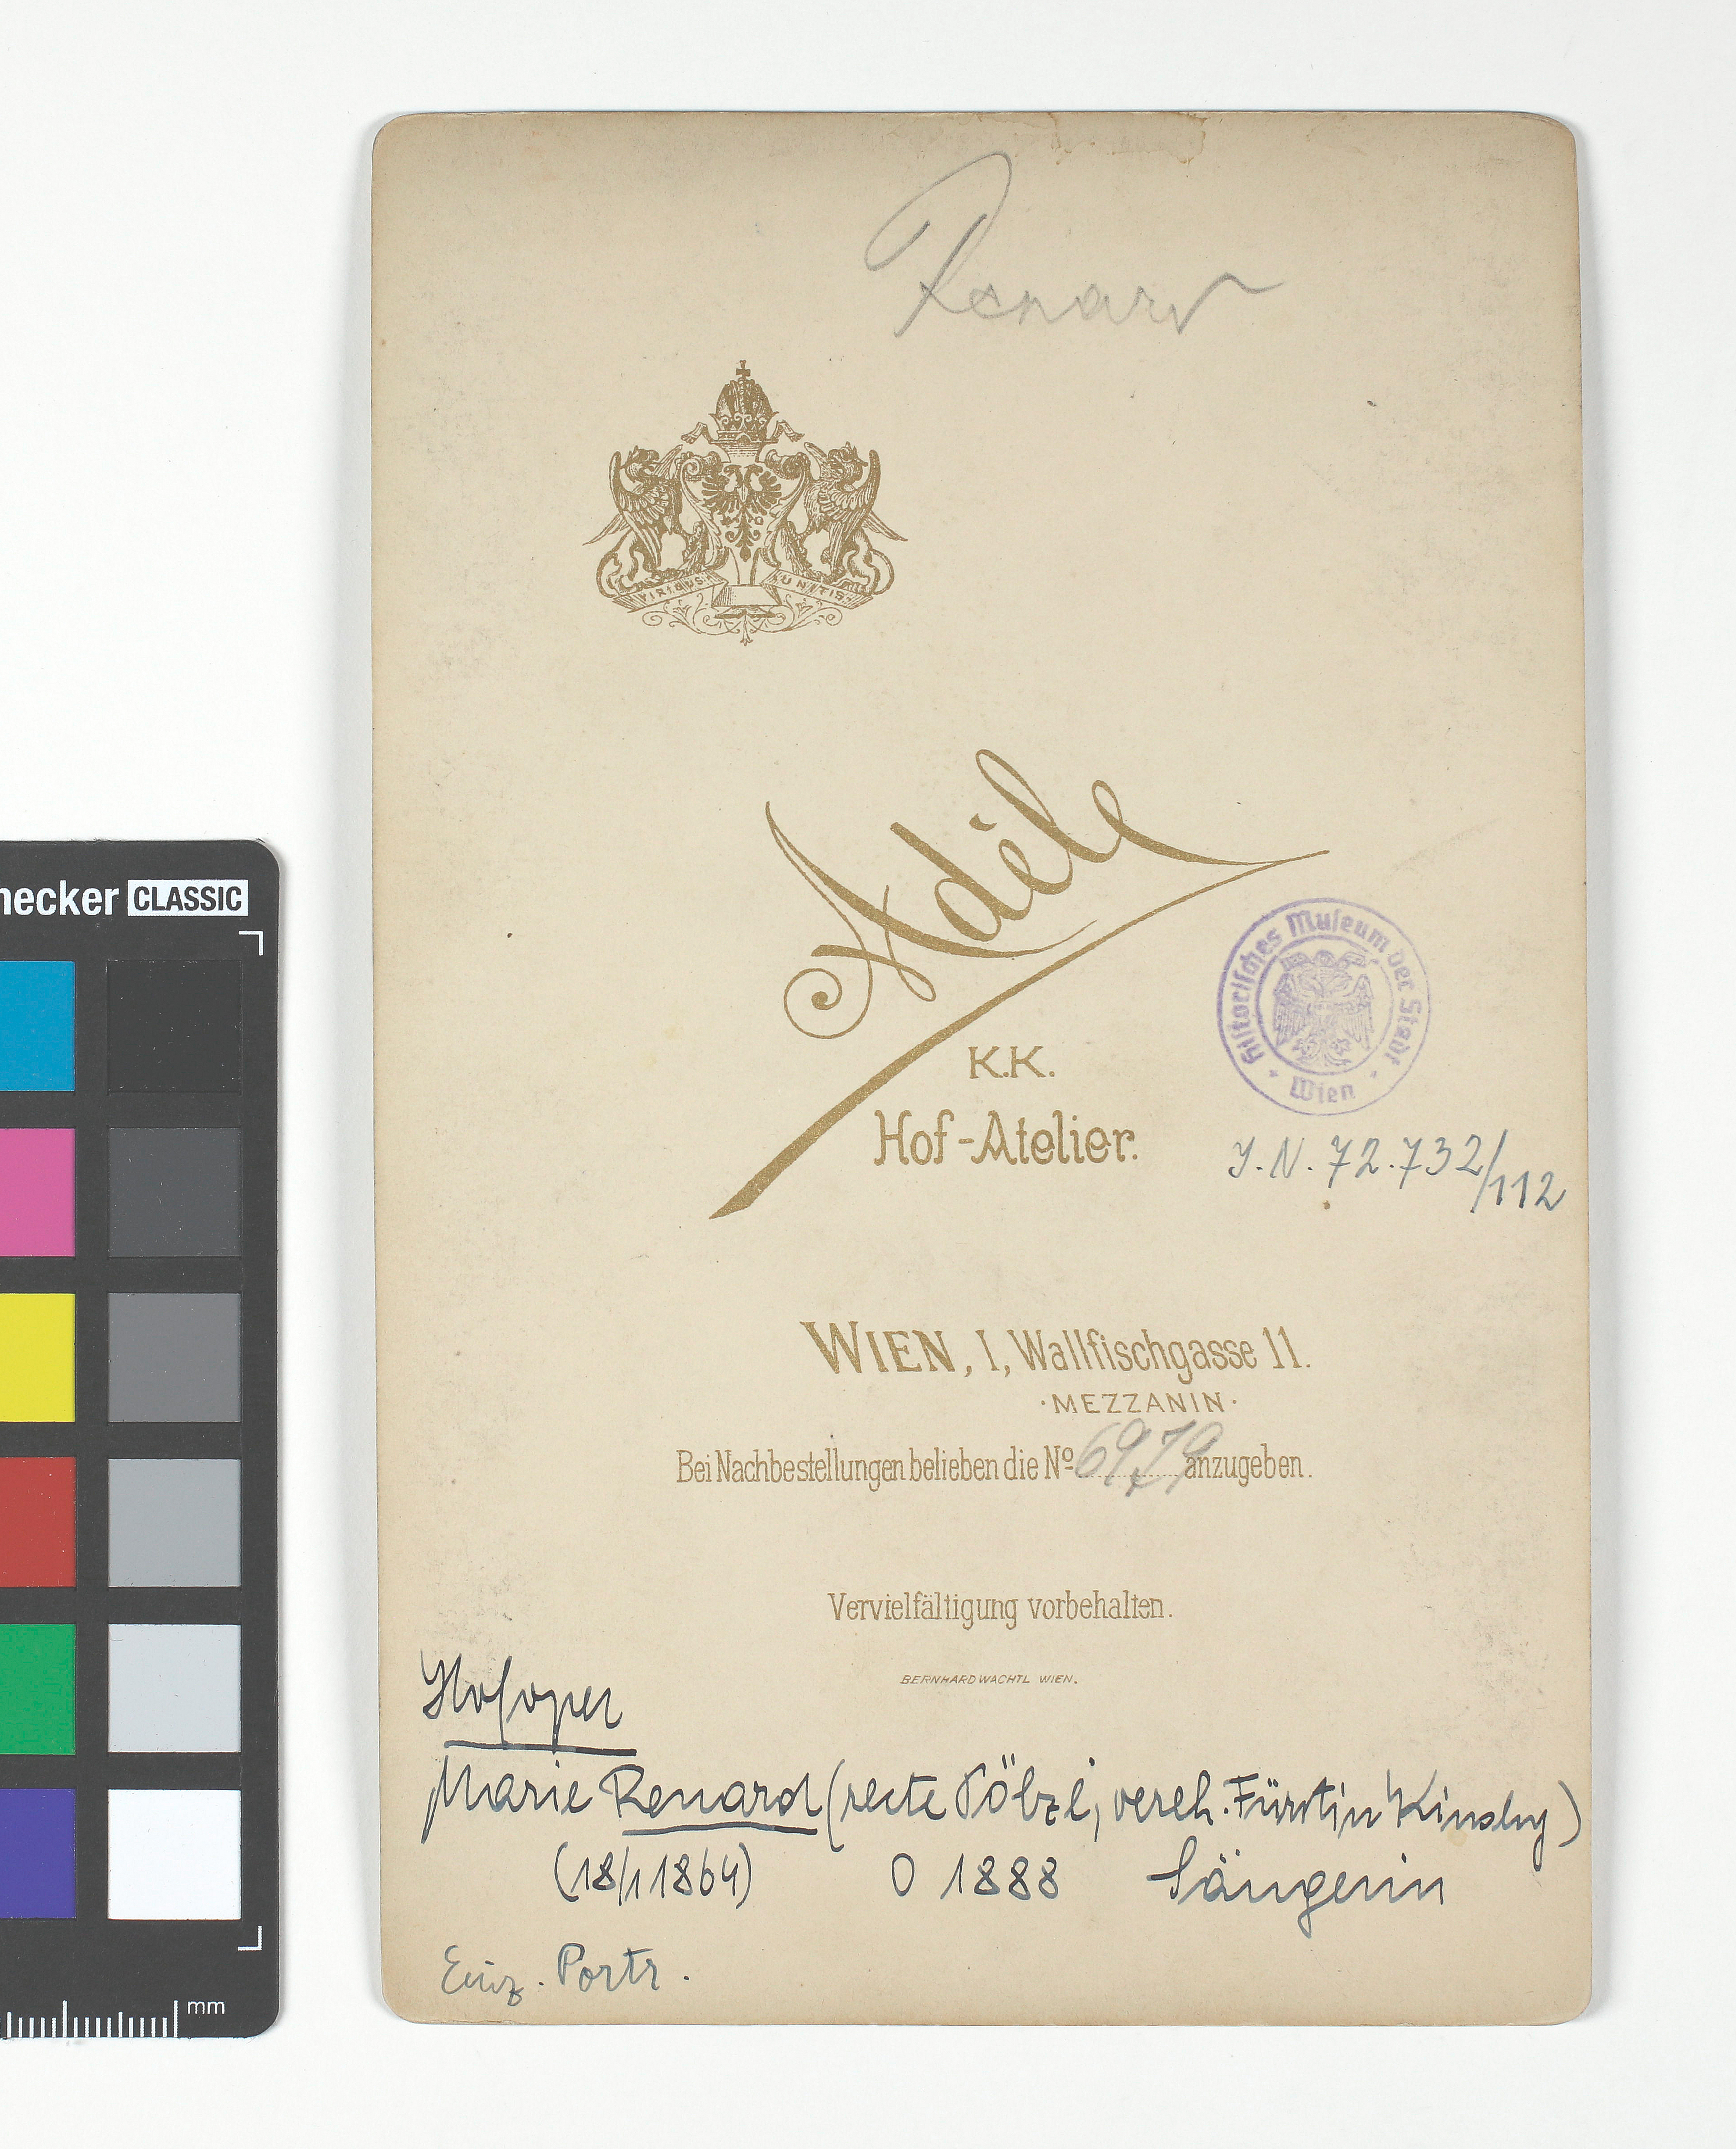 Renard
VIRIBUS UNITIS
Adéle
K.K.
Hof-Atelier.
Historisches Museum der Stadt Wien
J.N. 72.732/112
WIEN, I, Wallfischgasse 11.
·MEZZANIN·
Bei Nachbestellungen belieben die Nº 6979 anzugeben.
Vervielfältigung vorbehalten.
BERNHARD WACHTL WIEN.
Hofoper
Marie Renard (recte Pölzl, vereh. Fürstin Kinsky)
(18/1 1864) O 1888 Sängerin
Einz. Portr.
necker CLASSIC
mm